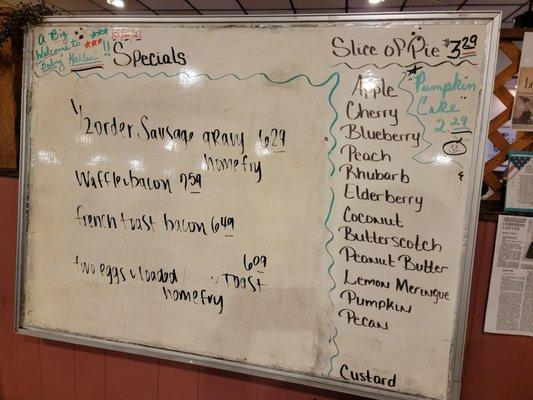 A Big
Welcome to
"Baby Kahleni"!!
Specials
1/2 order Sausage gravy 6 29
Homefry
Waffle & bacon 7 59
french toast bacon 6 49
two eggs & loaded
Homefry
& Toast
6 09
Slice of Pie $3 29
Apple
Cherry
Blueberry
Peach
Rhubarb
Elderberry
Coconut
Butterscotch
Peanut Butter
Lemon Meringue
Pumpkin
Pecan
Custard
"Pumpkin
Cake"
2.29